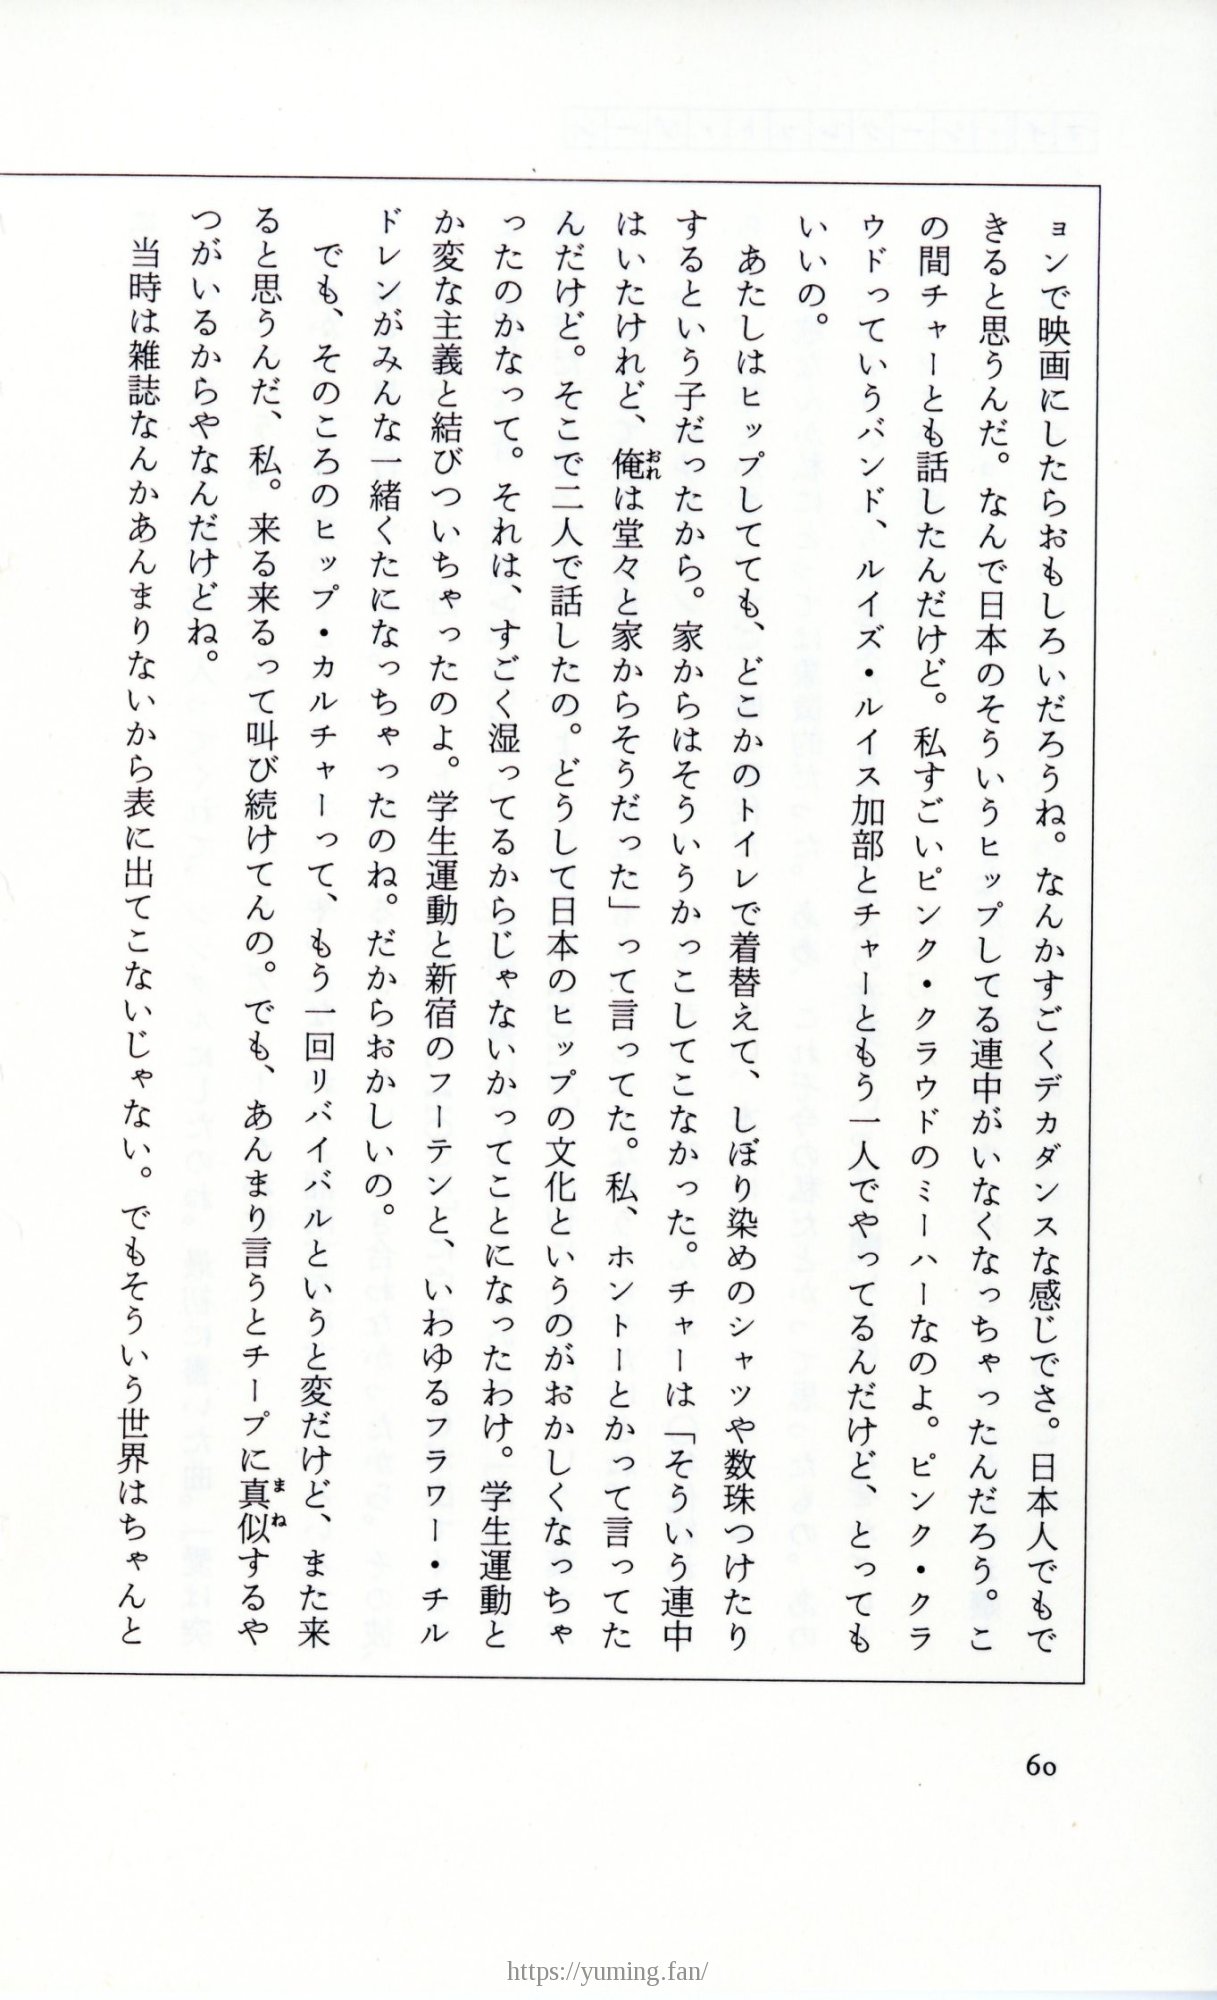 ョンで映画にしたらおもしろいだろうね。なんかすごくデカダンスな感じでさ。日本人でもで
きると思うんだ。なんで日本のそういうヒップしてる連中がいなくなっちゃったんだろう。こ
の間チャーとも話したんだけど。私すごいピンク・クラウドのミーハーなのよ。ピンク・クラ
ウドっていうバンド、ルイズ・ルイス加部とチャーともう一人でやってるんだけど、とっても
いいの。
あたしはヒップしてても、どこかのトイレで着替えて、しぼり染めのシャツや数珠つけたり
するという子だったから。家からはそういうかっこしてこなかった。チャーは「そういう連中
はいたけれど、俺おれは堂々と家からそうだった」って言ってた。私、ホントーとかって言ってた
んだけど。そこで二人で話したの。どうして日本のヒップの文化というのがおかしくなっちゃ
ったのかなって。それは、すごく湿ってるからじゃないかってことになったわけ。学生運動と
か変な主義と結びついちゃったのよ。学生運動と新宿のフーテンと、いわゆるフラワー・チル
ドレンがみんな一緒くたになっちゃったのね。だからおかしいの。
でも、そのころのヒップ・カルチャーって、もう一回リバイバルというと変だけど、また来
ると思うんだ、私。来る来るって叫び続けてんの。でも、あんまり言うとチープに真似まねするや
つがいるからやなんだけどね。
当時は雑誌なんかあんまりないから表に出てこないじゃない。でもそういう世界はちゃんと
60
https://yuming.fan/